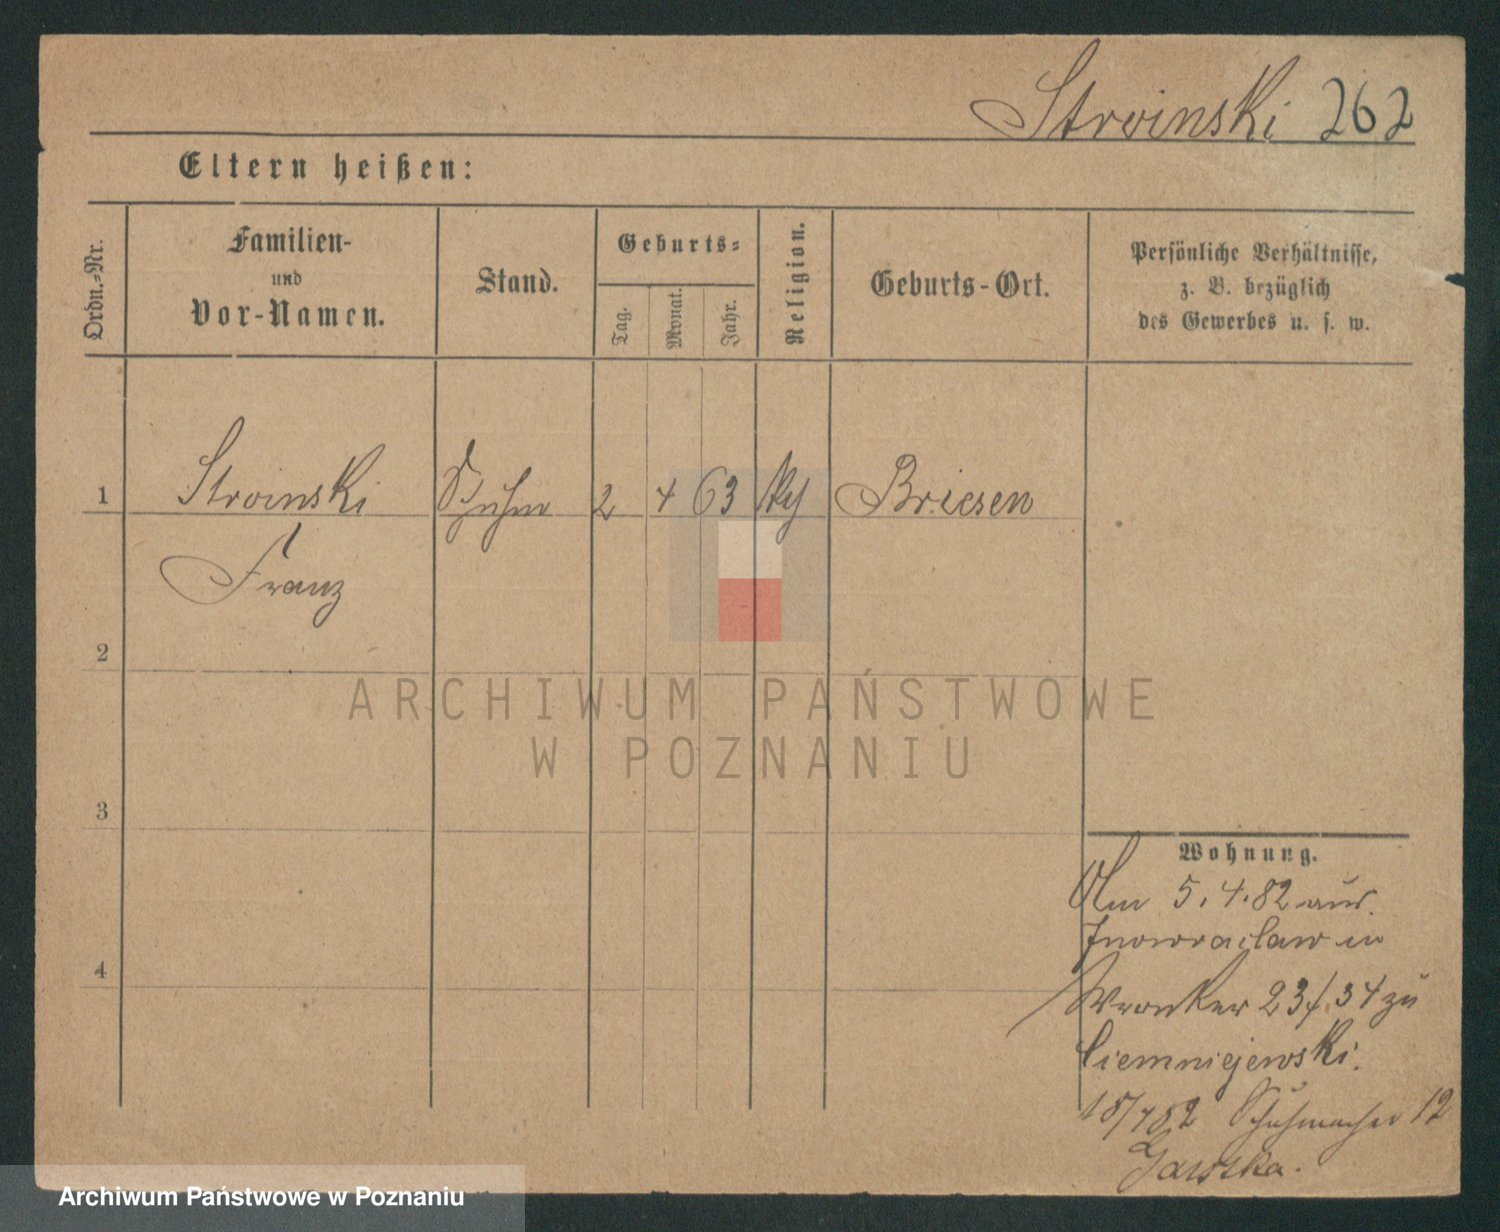 Stroinski 262
Eltern heißen:
Ordn.-Nr.
Familien-
und
Vor-Namen.
Stand.
Geburts-
Tag.
Monat.
Jahr.
Religion.
Geburts-Ort.
Persönliche Verhältnisse,
z. B. bezüglich
des Gewerbes u. s. w.
1 Stroinski Schuhm 2 4 63 Briesen
Franz
2
ARCHIWUM PAŃSTWOWE
W POZNANIU
3
Wohnung.
5.4.82 aus
Inowraclaw in
Wronker 23/.34 zu
Ciemniejewski.
15/7 82 Schuhmacher 12
4
Archiwum Państwowe w Poznaniu